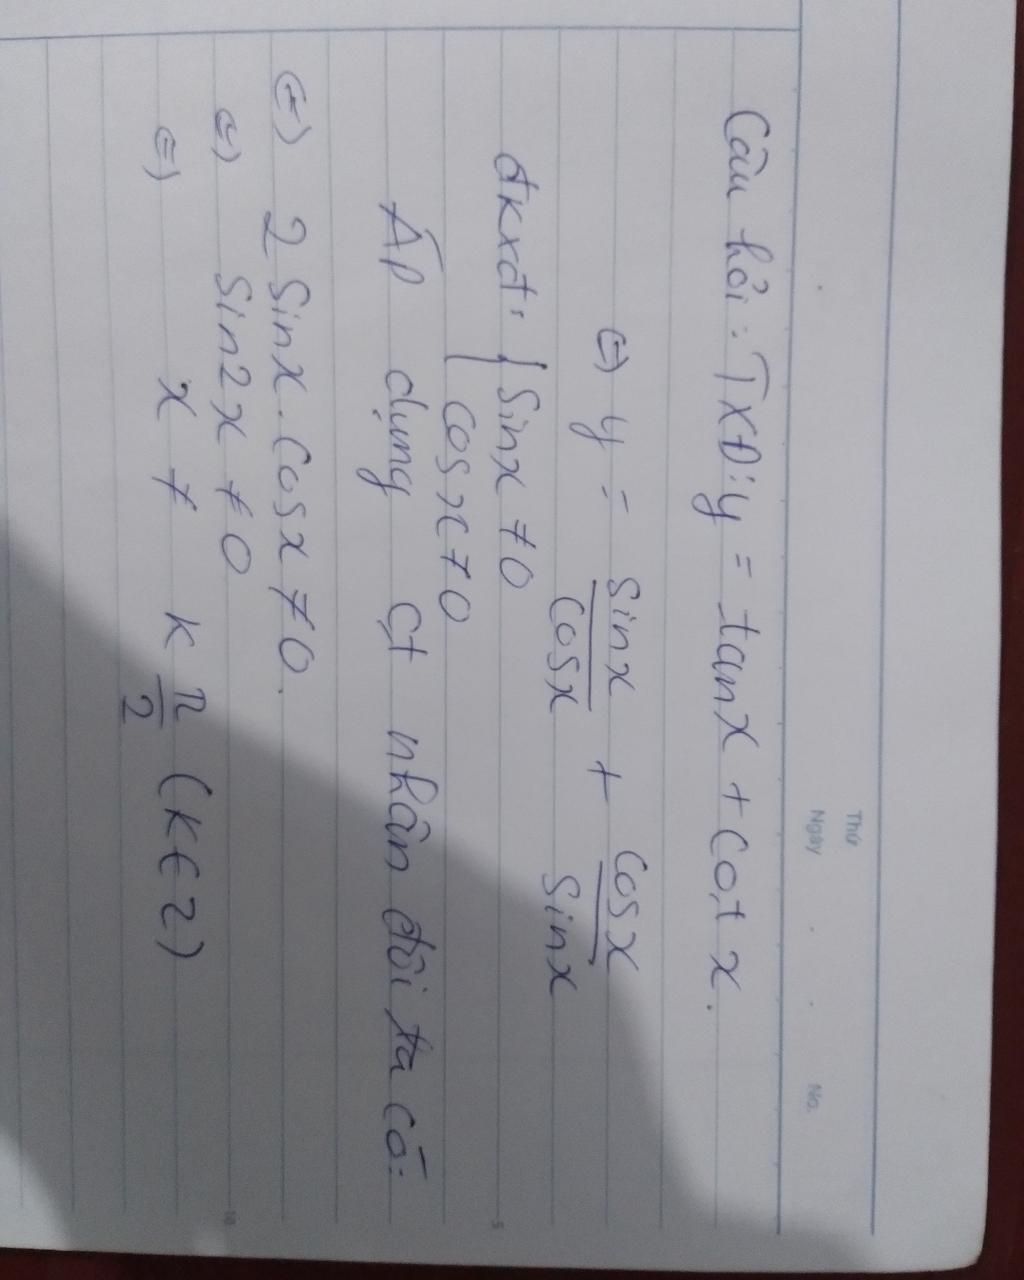 Thứ
Ngày . . No.
Câu hỏi: TXĐ: y = tanx + cot x.
(=) y = sinx/cosx + cosx/sinx
đkxđ: { sinx ≠ 0
cosx ≠ 0
Áp dụng ct nhân đôi ta có:
(=) 2 sinx. cosx ≠ 0.
(=) sin2x ≠ 0
(=) x ≠ k π/2 (k ∈ Z)
5
10